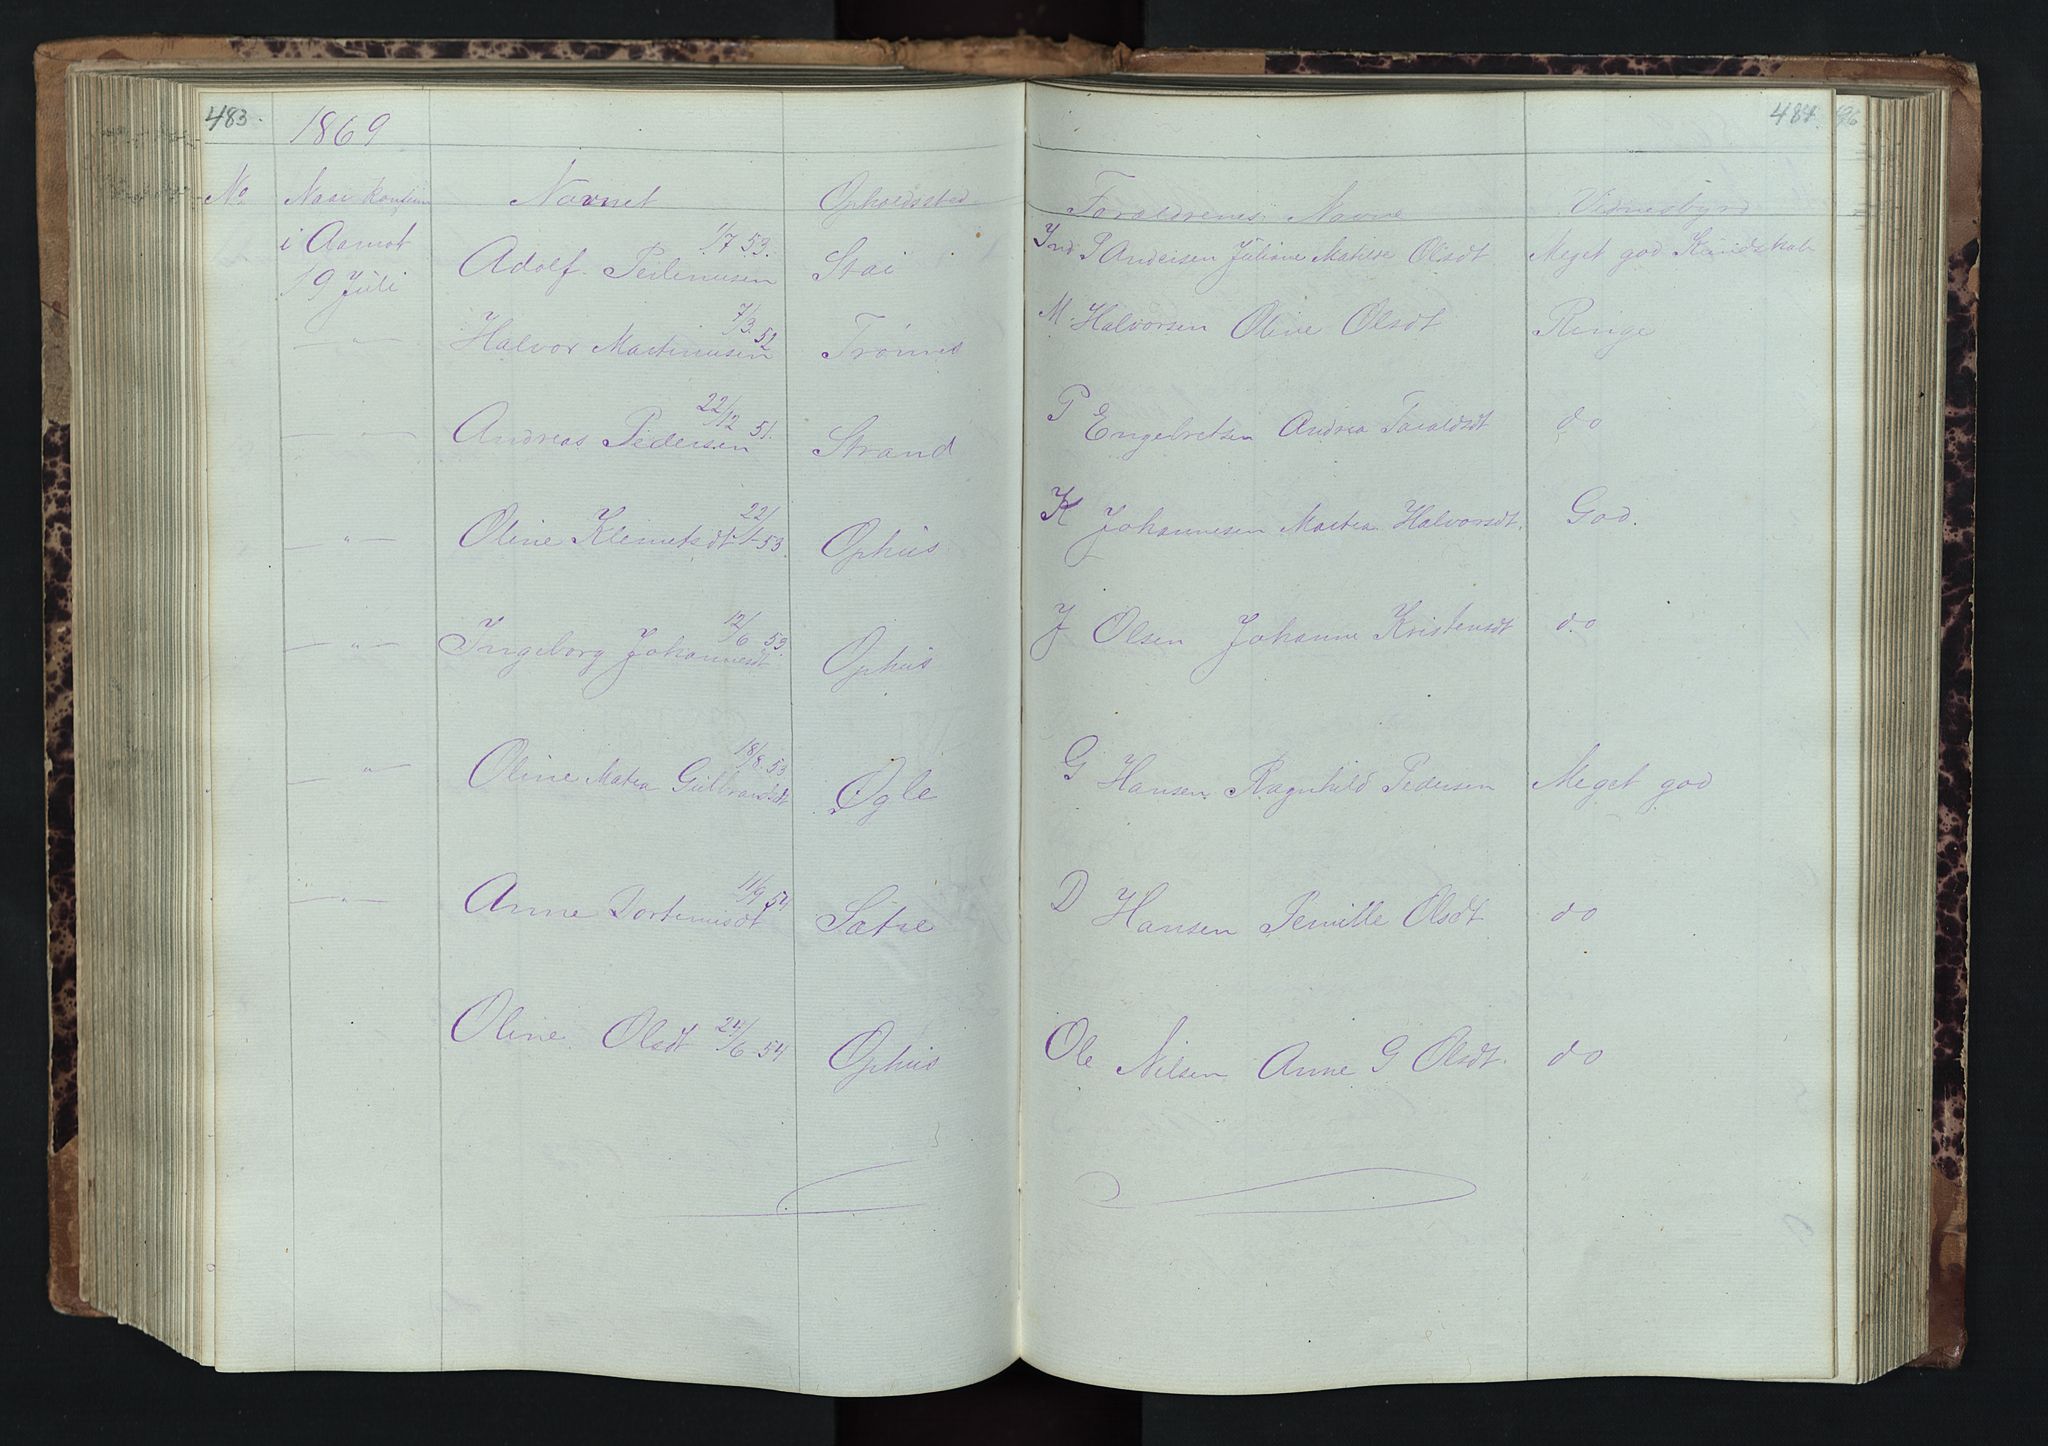 483.
1869
No Naar Konfirm Navnet Opholdssted
i Aamot
19 Juli
Adolf Pedernusen 1/7 53. Stai
— " — Halvor Martinusen 7/3. 52 Trønnes
— " — Andreas Pedersen 22/12 51. Strand
— " — Oline Klemetsdt 22/1 53. Ophus
— " — Ingeborg Johannesdt 12/6 53. Ophus
— " — Oline Matea Gulbrandsdt 18/8. 53 Øgle
— " — Anne Dortenusdt 11/9 54 Sætre
Oline Olsdt 24/6 54 Ophus
484.
Forældrenes Navne Vidnesbyrd
P Andersen Juliane Matilde Olsdt Meget god Kundskab
M. Halvorsen Oline Olsdt Ringe
P Engebretsen Andrea Taraldsdt do
K Johannesen Martea Halvorsdt. God.
J Olsen Johanne Kristensdt do
G Hansen Ragnhild Pedersen Meget god
D Hansen Pernille Olsdt do
Ole Nilsen Anne G Olsdt. do